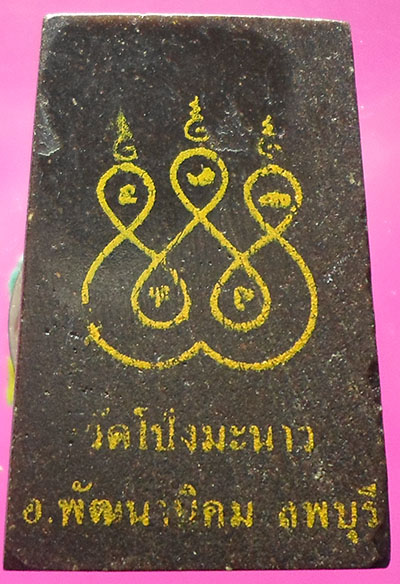 วัดโป่งมะนาว
อ.พัฒนานิคม ลพบุรี